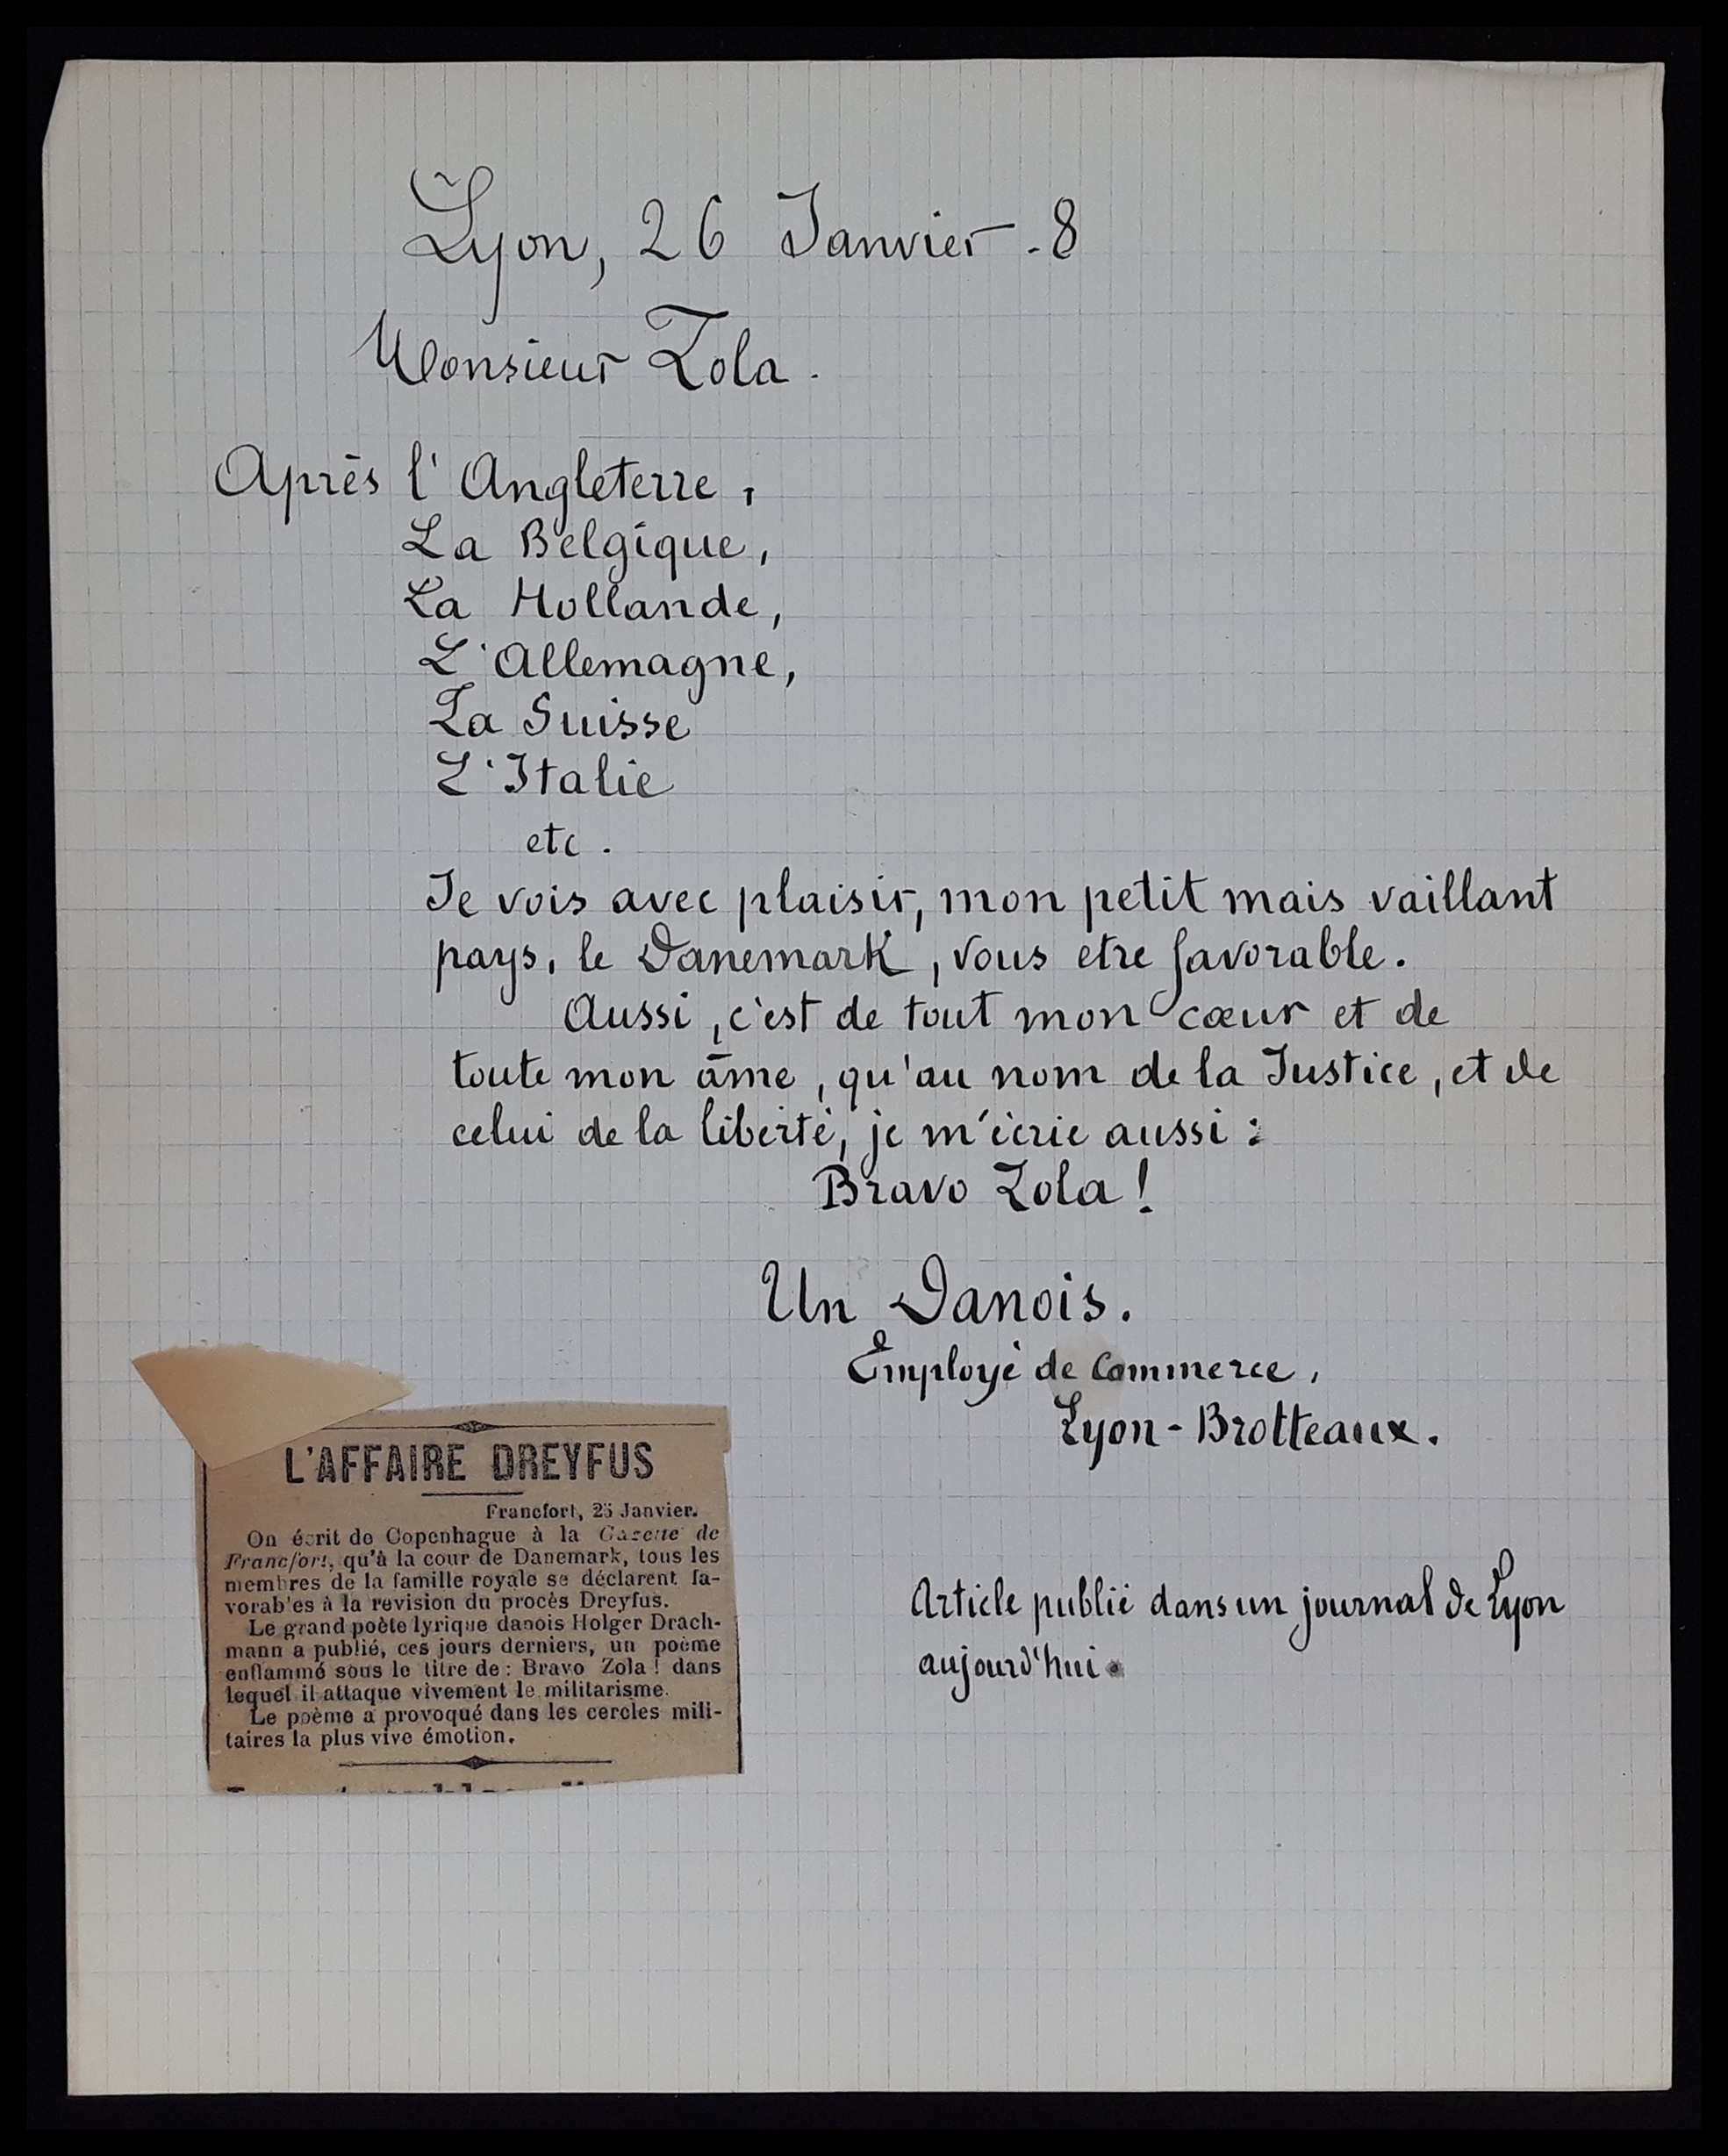 Lyon, 26 Janvier -8
Monsieur Zola.
Après l'Angleterre,
La Belgique,
La Hollande,
L'Allemagne,
La Suisse
L'Italie
etc.
Je vois avec plaisir, mon petit mais vaillant
pays, le Danemark, vous etre favorable.
Aussi, c'est de tout mon cœur et de
toute mon âme, qu'au nom de la Justice, et de
celui de la liberté, je m'écrie aussi :
Bravo Zola !
Un Danois.
Employé de Commerce,
Lyon-Brotteaux.
L'AFFAIRE DREYFUS
Francfort, 25 Janvier.
On écrit de Copenhague à la Gazette de
Francfort, qu'à la cour de Danemark, tous les
membres de la famille royale se déclarent fa-
vorables à la revision du procès Dreyfus.
Le grand poète lyrique danois Holger Drach-
mann a publié, ces jours derniers, un poème
enflammé sous le titre de : Bravo Zola ! dans
lequel il attaque vivement le militarisme.
Le poème a provoqué dans les cercles mili-
taires la plus vive émotion.
Article publié dans un journal de Lyon
aujourd'hui.